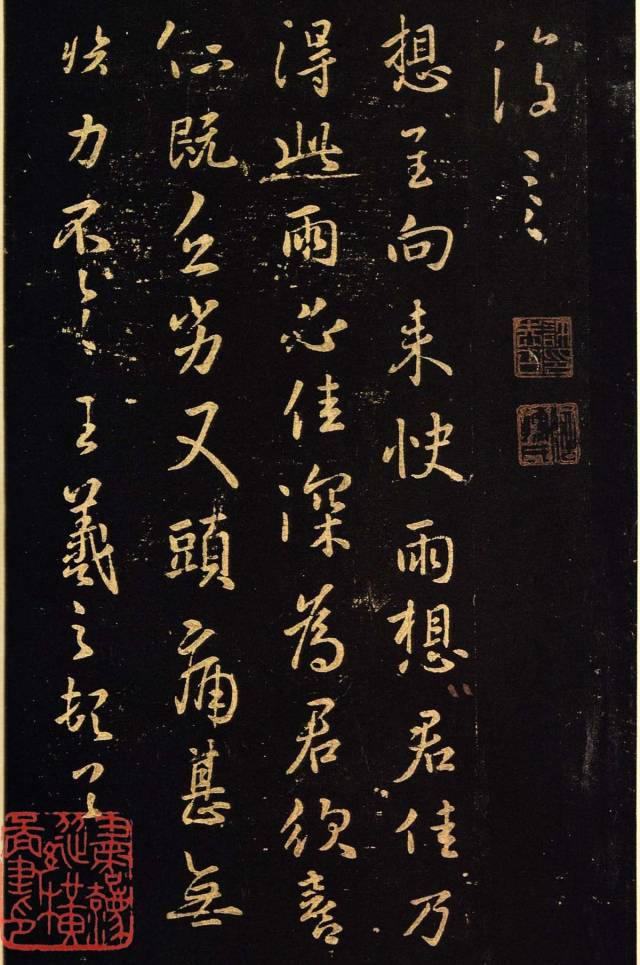 想至向来快雨想君佳乃
得此雨必佳深為君欣喜
既乏劣又頭痛甚無
力不王羲之頓首